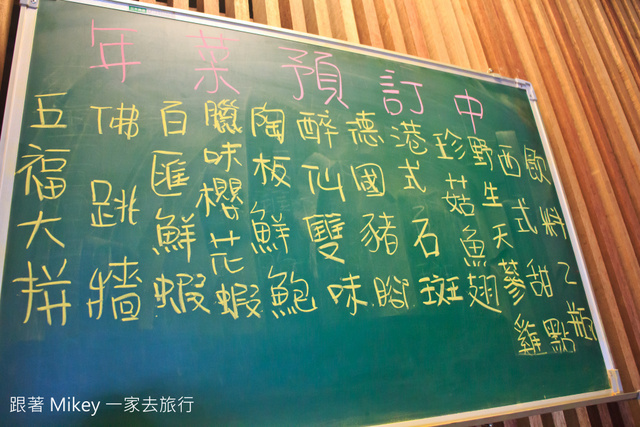 年菜預訂中
五福大拼
佛跳牆
百匯鮮蝦
臘味櫻花蝦
陶板鮮鮑
醉仙雙味
德國豬腳
港式石斑
珍菇魚翅
野生天蔘雞
西式甜點
飲料乙瓶
跟著 Mikey 一家去旅行